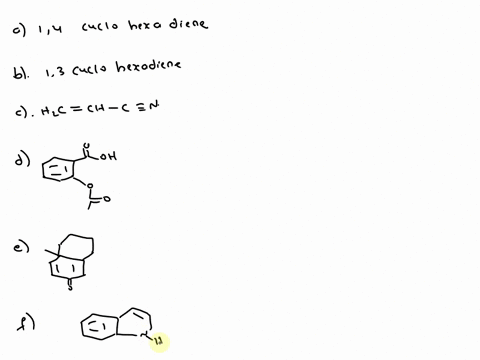 a) 1,4 cuclo hexa diene
b). 1,3 cuclo hexodiene
c). H₂C = CH - C ≡ N
d) O OH
O
O
e)
O
f) N H